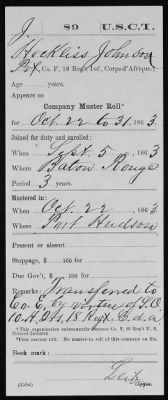 J | 89 | U.S.C.T.
Hockliss Johnson
Pvt, Co. F, 18 Reg't Inf., Corps d'Afrique.
Age years.
Appears on
Company Muster Roll
for Oct. 22 to 31, 1863
Joined for duty and enrolled:
When Sept. 5, 1863
Where Baton Rouge
Period 3 years.
Mustered in:
When Oct. 22, 1863
Where Port Hudson
Present or absent
Stoppage, $ 100 for
Due Gov't, $ 100 for
Remarks: Transferred to
Co. E by virtue of S.O.
10 H. Qts. 18 Regt. C. d. A.
*This organization subsequently became Co. F, 89 Reg't U.S.
Colored Infantry
Book mark:
(858d) Copyist.